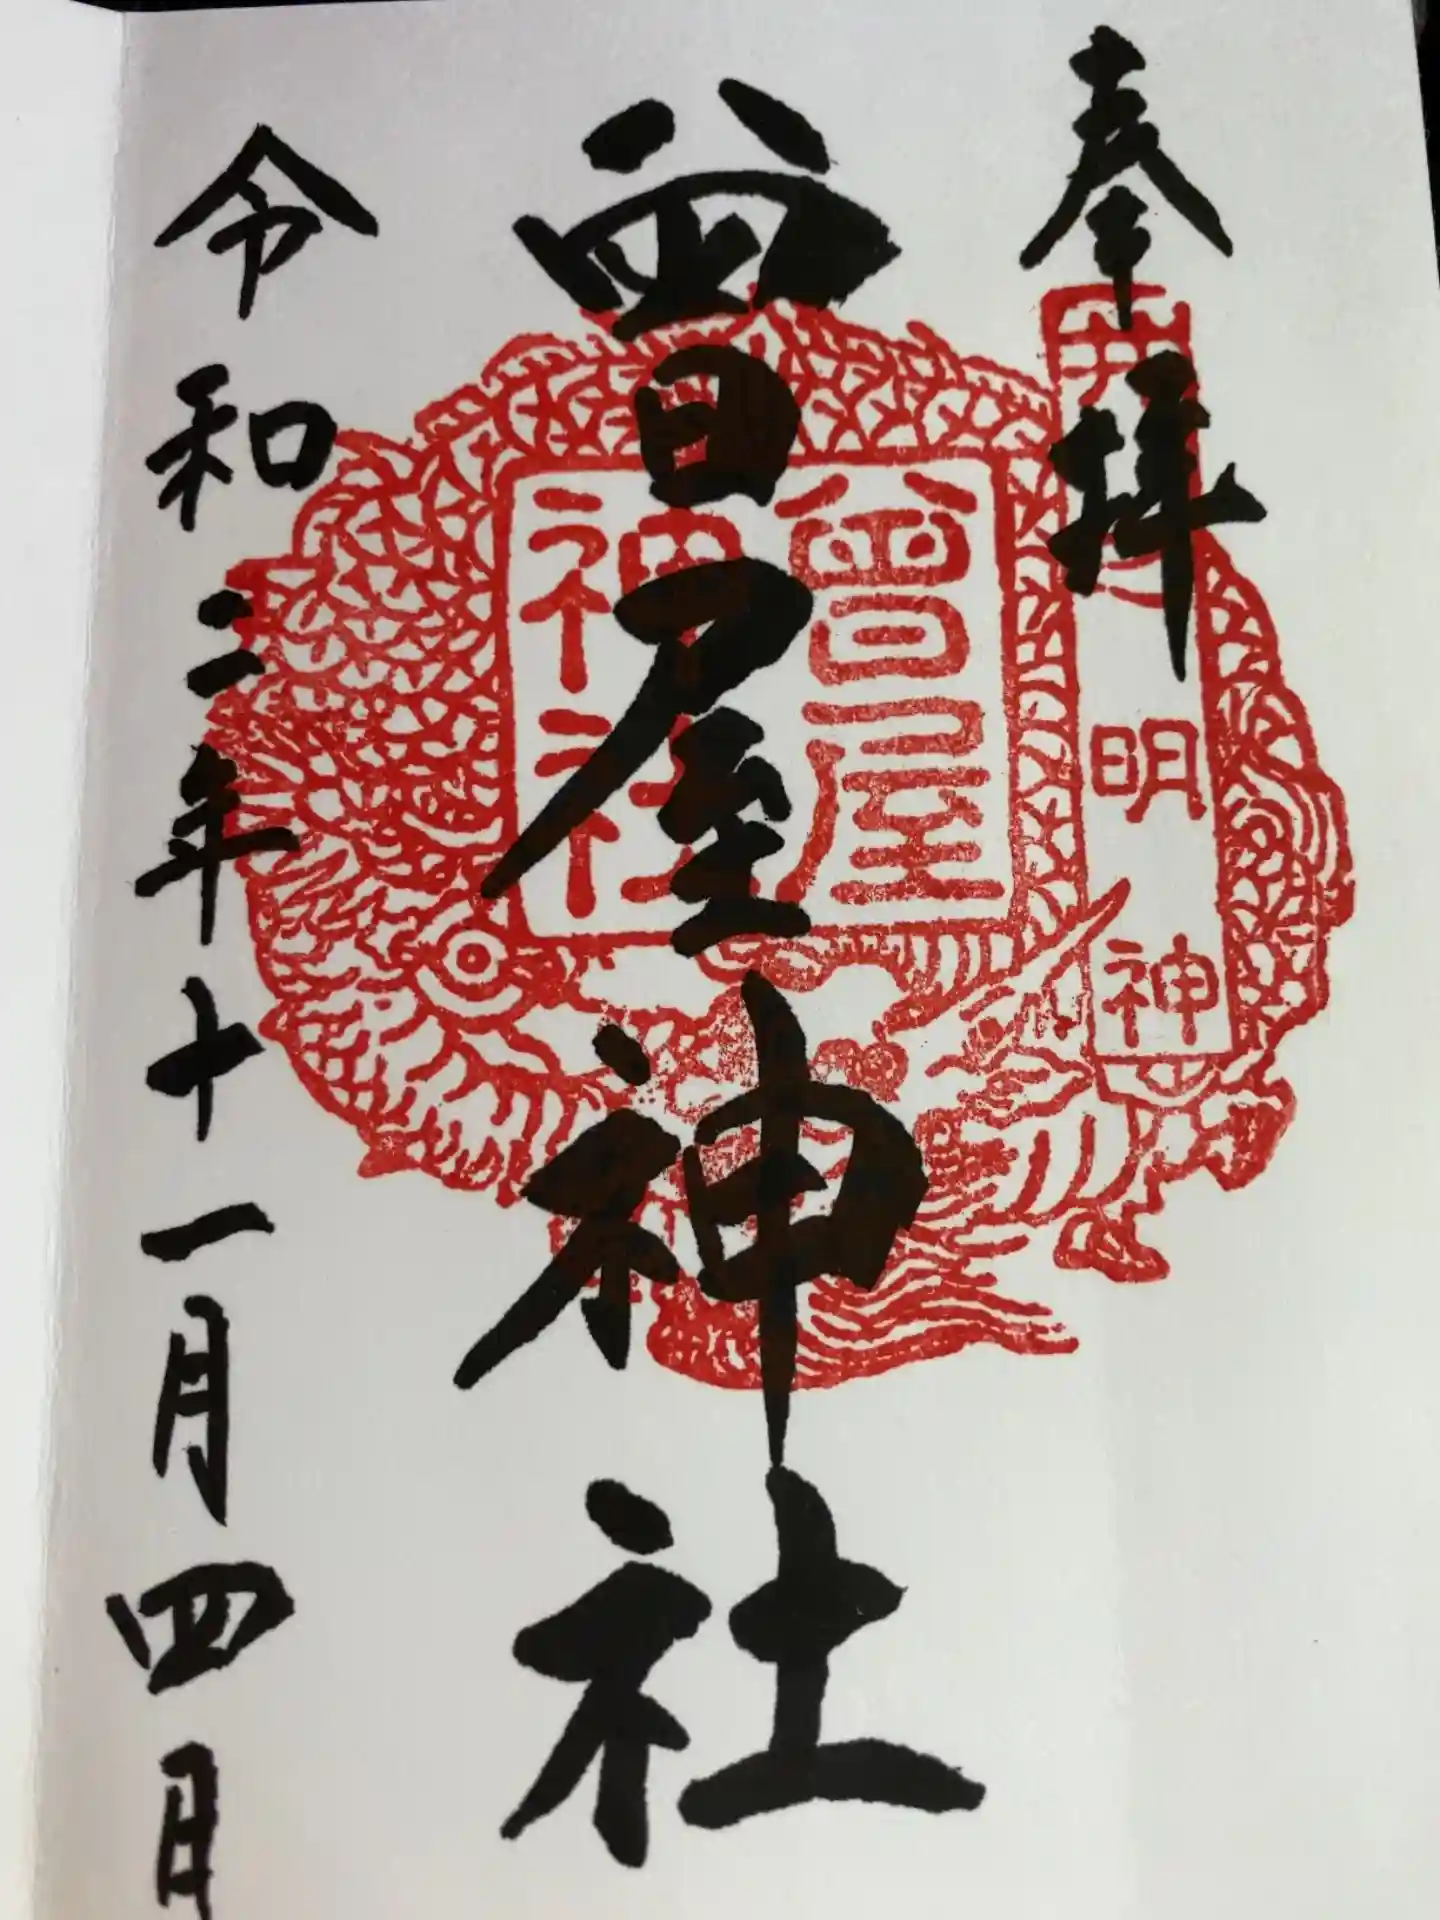 奉拝
井之明神
曾屋神社
曾屋
神社
令和二年十一月四日